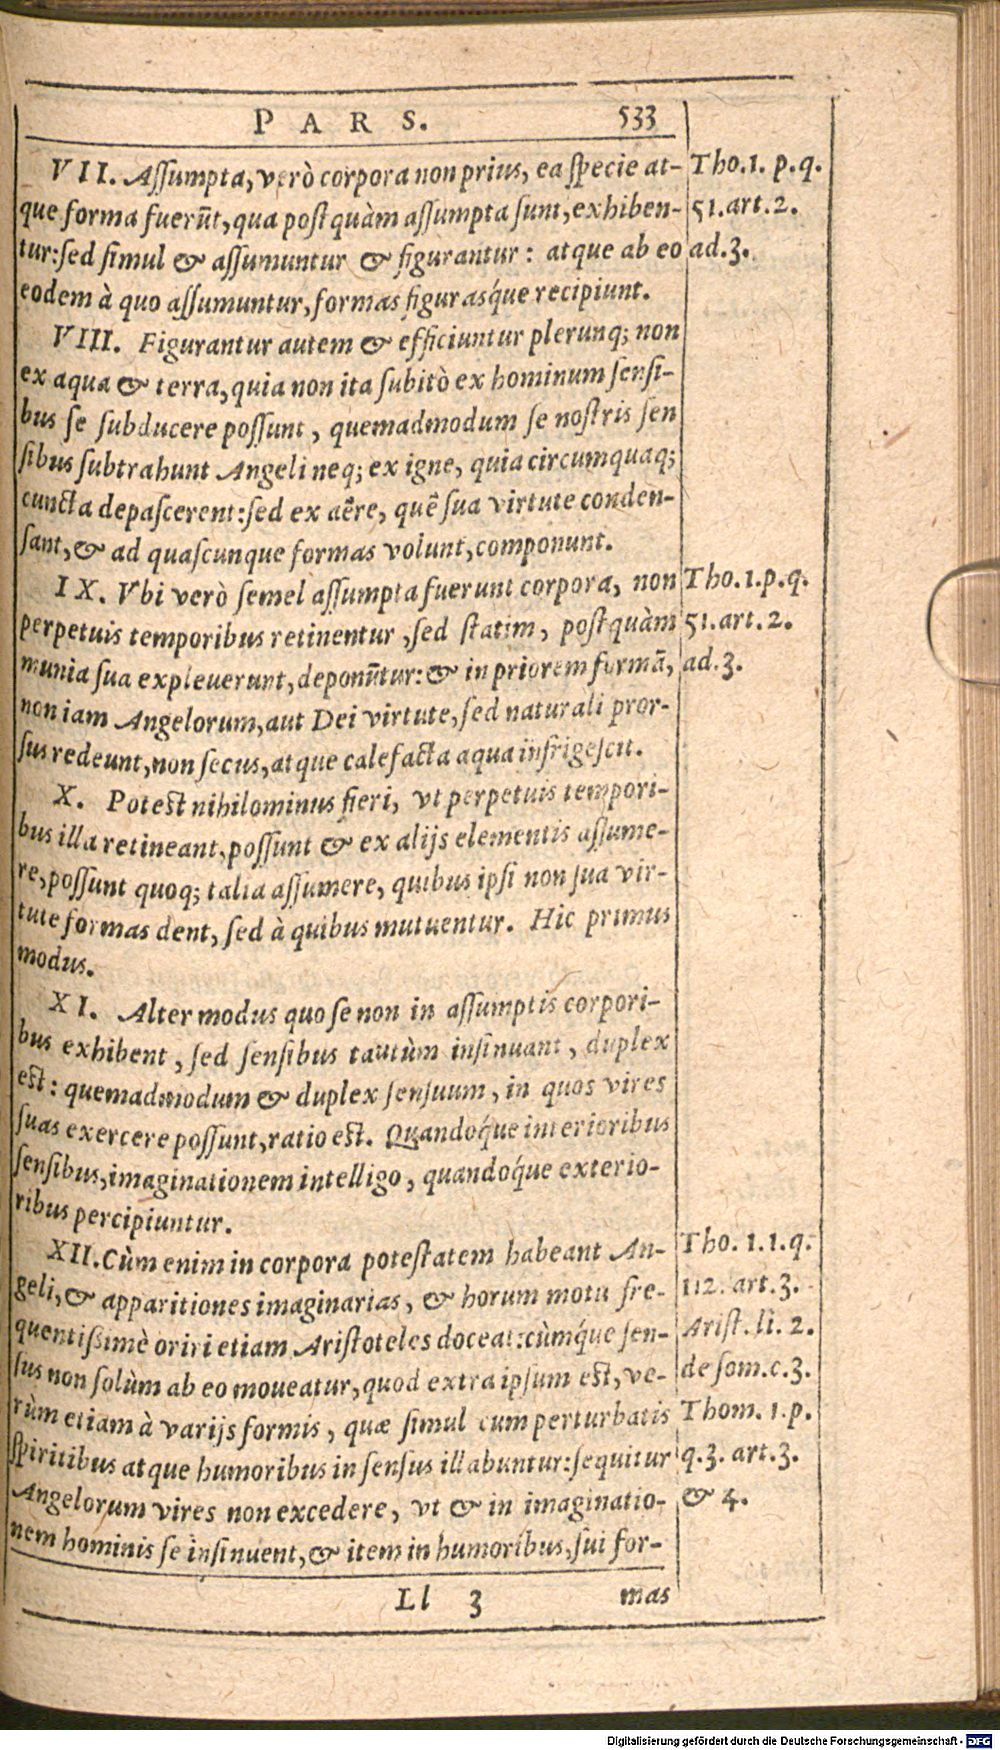 PARS. 533
VII. Aſſumpta, verò corpora non prius, ea ſpecie at-
que forma fuerūt, qua poſtquàm aſſumpta ſunt, exhiben-
tur: ſed ſimul & aſſumuntur & figurantur: atque ab eo
eodem à quo aſſumuntur, formas figurasq́ue recipiunt.
Tho. 1. p. q.
51. art. 2.
ad. 3.
VIII. Figurantur autem & efficiuntur plerunq; non
ex aqua & terra, quia non ita ſubitò ex hominum ſenſi-
bus ſe ſubducere poſſunt, quemadmodum ſe noſtris ſen
ſibus ſubtrahunt Angeli neq; ex igne, quia circumquaq;
cuncta depaſcerent: ſed ex aëre, quē ſua virtute conden-
ſant, & ad quaſcunque formas volunt, componunt.
IX. Vbi verò ſemel aſſumpta fuerunt corpora, non
perpetuis temporibus retinentur, ſed ſtatim, poſtquàm
munia ſua expleuerunt, deponūtur: & in priorem formā,
non iam Angelorum, aut Dei virtute, ſed naturali pror-
ſus redeunt, non ſecus, atque calefacta aqua infrigeſcit.
Tho. 1. p. q.
51. art. 2.
ad. 3.
X. Poteſt nihilominus fieri, vt perpetuis tempori-
bus illa retineant, poſſunt & ex alijs elementis aſſume-
re, poſſunt quoq; talia aſſumere, quibus ipſi non ſua vir-
tute formas dent, ſed à quibus mutuentur. Hic primus
modus.
XI. Alter modus quo ſe non in aſſumptis corpori-
bus exhibent, ſed ſenſibus tautùm inſinuant, duplex
eſt: quemadmodum & duplex ſenſuum, in quos vires
ſuas exercere poſſunt, ratio eſt. Quandoq́ue interioribus
ſenſibus, imaginationem intelligo, quandoq́ue exterio-
ribus percipiuntur.
XII. Cùm enim in corpora poteſtatem habeant An-
geli, & apparitiones imaginarias, & horum motu fre-
quentiſsimè oriri etiam Ariſtoteles doceat: cùmq́ue ſen-
ſus non ſolùm ab eo moueatur, quod extra ipſum eſt, ve-
rùm etiam à varijs formis, quæ ſimul cum perturbatis
ſpiritibus atque humoribus in ſenſus illabuntur: ſequitur
Angelorum vires non excedere, vt & in imaginatio-
nem hominis ſe inſinuent, & item in humoribus, ſui for-
Tho. 1. 1. q.
112. art. 3.
Ariſt. li. 2.
de ſom. c. 3.
Thom. 1. p.
q. 3. art. 3.
& 4.
Ll 3 mas
Digitalisierung gefördert durch die Deutsche Forschungsgemeinschaft - DFG